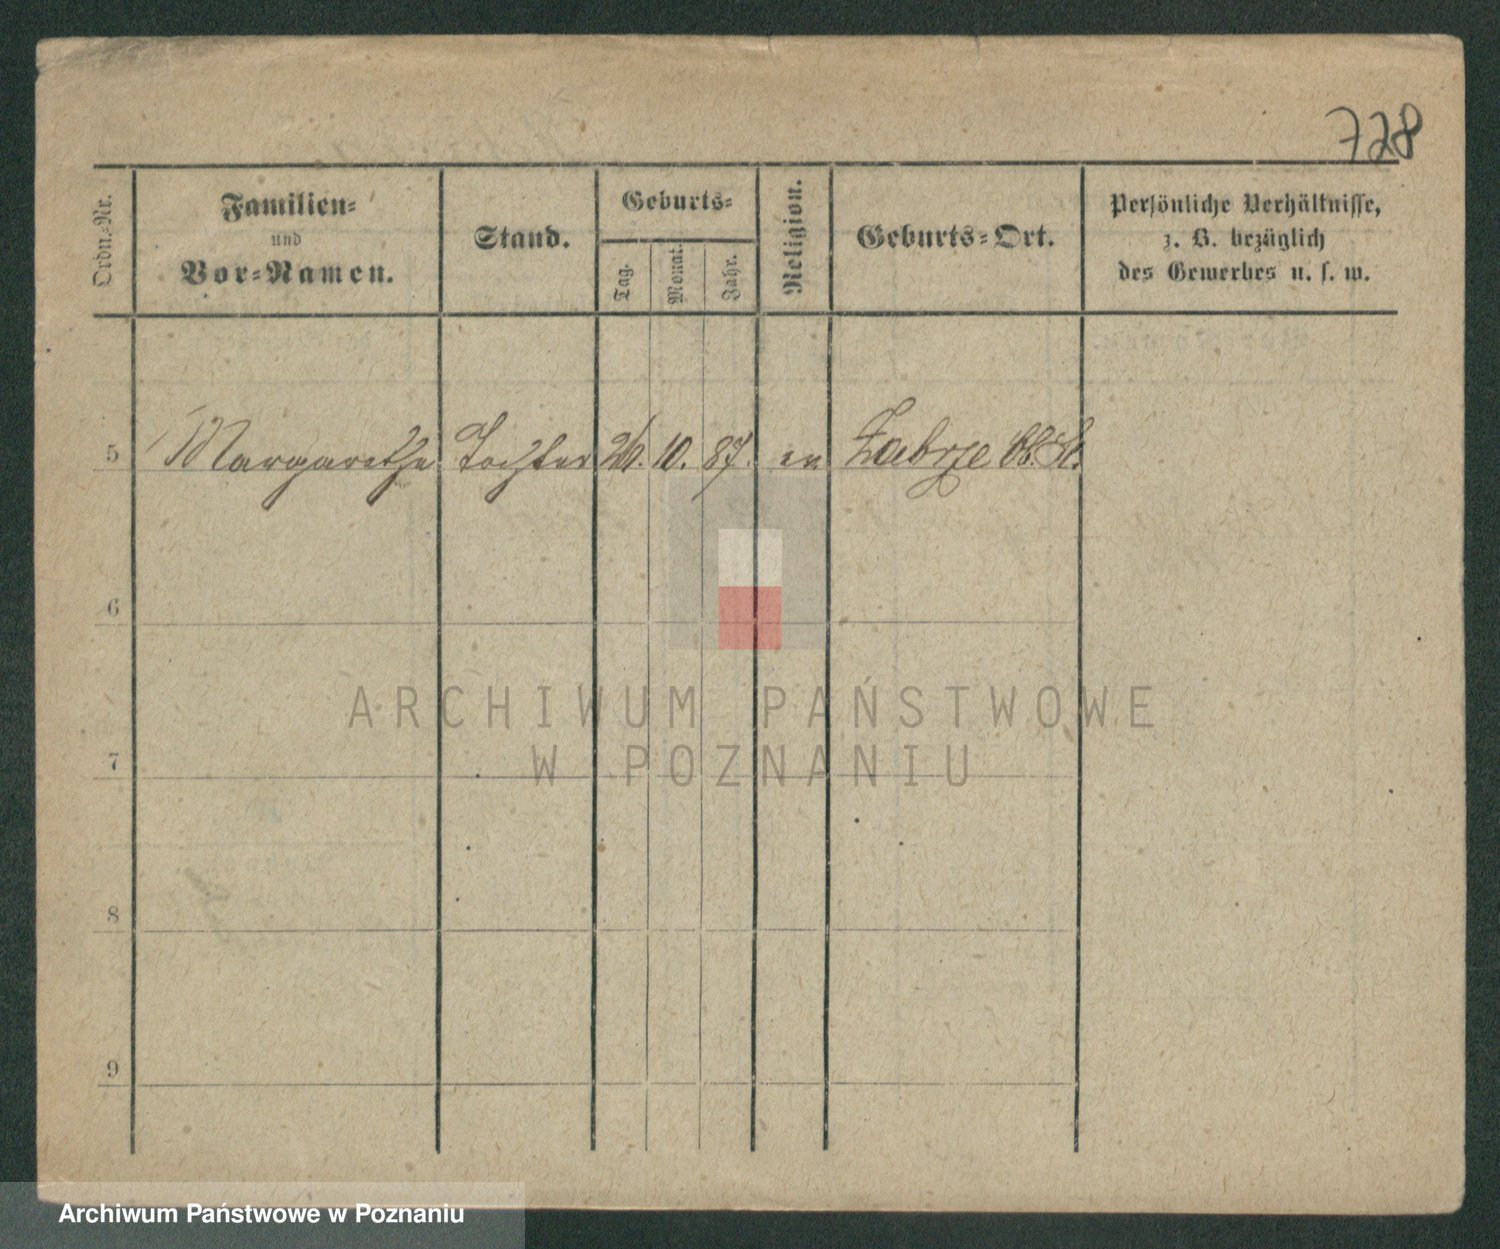 728
Ordn.-Nr.
Familien-
und
Vor-Namen.
Stand.
Geburts-
Tag.
Monat.
Jahr.
Religion.
Geburts-Ort.
Persönliche Verhältnisse,
z. B. bezüglich
des Gewerbes u. s. w.
5 Margarethe Tochter 26. 10. 87. ev Zabrze Ob. Sl.
6
7
8
9
ARCHIWUM PAŃSTWOWE
W POZNANIU
Archiwum Państwowe w Poznaniu